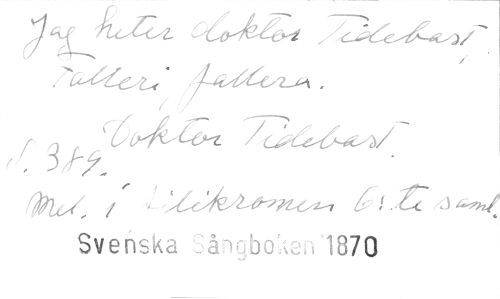 Jag heter doktor Tidebast,
Falleri, fallera.
Doktor Tidebast.
s. 389.
Mel. i Lilikromen 6:te saml.
Svenska Sångboken 1870